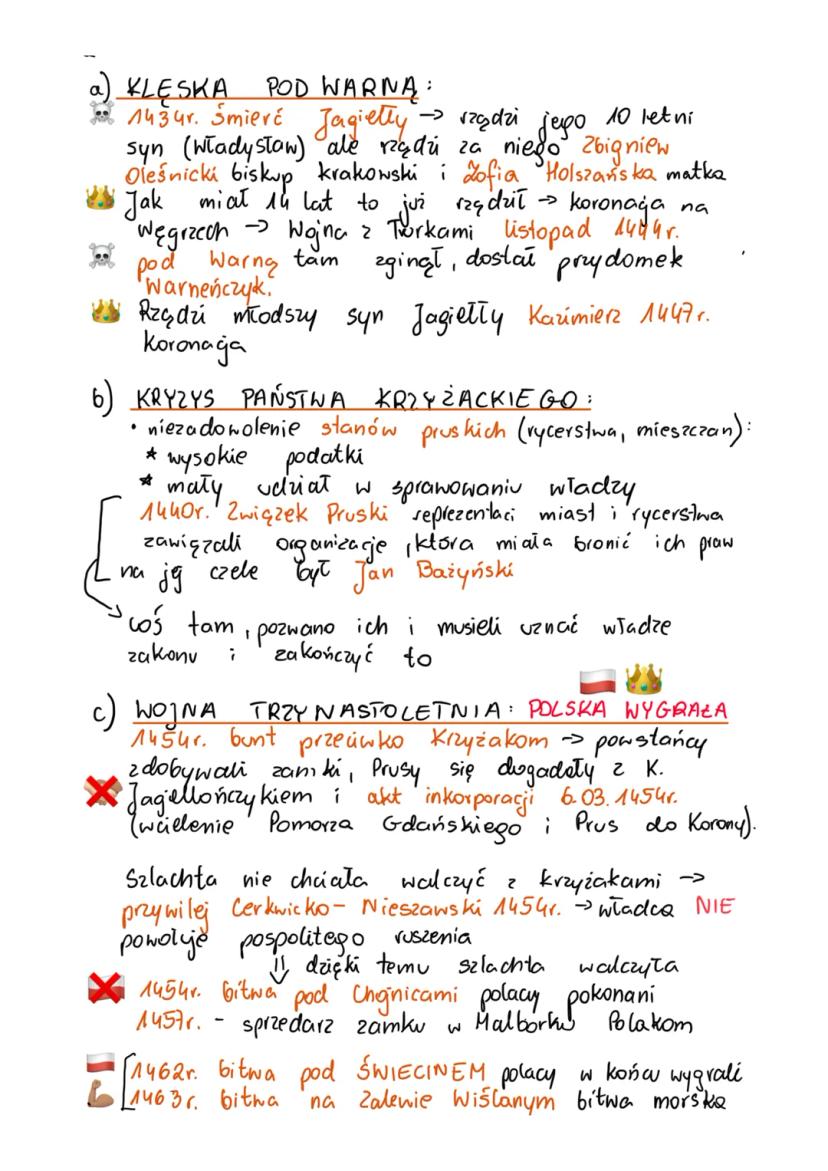 a) KLĘSKA POD WARNĄ:
1434r. śmierć Jagiełły → rządzi jego 10 letni
syn (Władysław) ale rządzi za niego Zbigniew
Oleśnicki biskup krakowski i Zofia Holszańska matka
Jak miał 14 lat to już rządził → koronacja na
węgrzech → Wojna z Turkami listopad 1444r.
pod Warną tam zginął, dostał przydomek
Warneńczyk.
Rządzi młodszy syn Jagiełły Kazimierz 1447r.
koronacja
b) KRYZYS PAŃSTWA KRZYŻACKIEGO:
• niezadowolenie stanów pruskich (rycerstwa, mieszczan):
* wysokie podatki
* mały udział w sprawowaniu władzy
1440r. Związek Pruski reprezentaci miast i rycerstwa
zawiązali organizację, która miała bronić ich praw
na jej czele był Jan Bażyński
coś tam, pozwano ich i musieli uznać władze
zakonu i zakończyć to
c) WOJNA TRZYNASTOLETNIA: POLSKA WYGRAŁA
1454r. bunt przeciwko Krzyżakom → powstańcy
zdobywali zamki, Prusy się dogadały z K.
Jagiellończykiem i akt inkorporacji 6.03.1454r.
(wcielenie Pomorza Gdańskiego i Prus do Korony).
Szlachta nie chciała walczyć z krzyżakami →
przywilej Cerkwicko-Nieszawski 1454r. → władca NIE
powołuje pospolitego ruszenia
⇓ dzięki temu szlachta walczyła
1454r. bitwa pod Chojnicami polacy pokonani
1457r. - sprzedarz zamku w Malborku Polakom
1462r. bitwa pod ŚWIECINEM polacy w końcu wygrali
1463r. bitwa na Zalewie Wiślanym bitwa morska